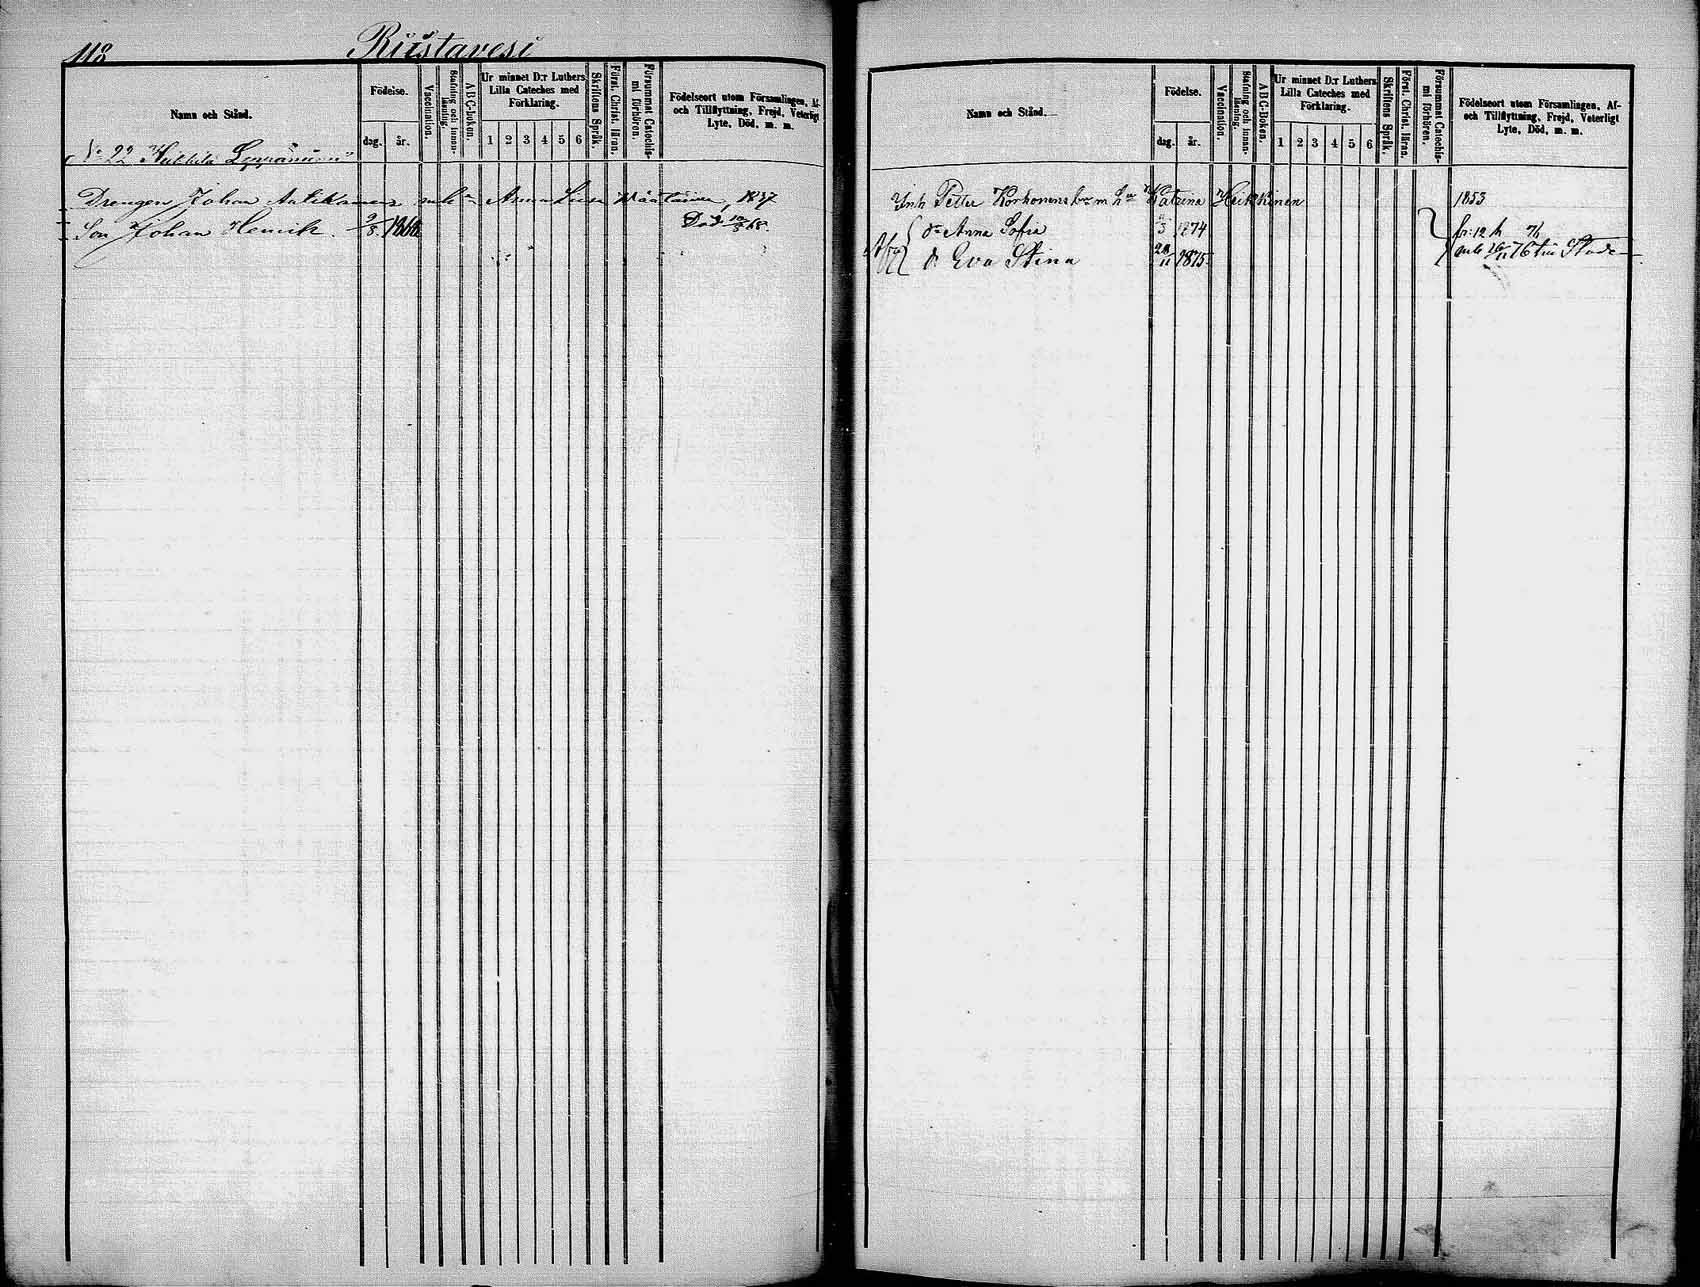 113
Riistavesi
Namn och Stånd.
Födelse.
dag. år.
Vaccination.
Stafning och innanläsning.
ABC-boken.
Ur minnet D:r Luthers Lilla Cateches med Förklaring.
1 2 3 4 5 6
Skriftens Språk.
Först. Christ. läran.
Försummat Catechismi förhören.
Födelseort utom Församlingen, Af- och Tillflyttning, Frejd, Veterligt Lyte, Död, m. m.
No 22
Drengen Johan m h:n Anna Lisa 1837
Son Johan Henrik. 9/8 1866 Död 10/5 68.
Namn och Stånd.
Födelse.
dag. år.
Vaccination.
Stafning och innanläsning.
ABC-Boken.
Ur minnet D:r Luthers Lilla Cateches med Förklaring.
1 2 3 4 5 6
Skriftens Språk.
Först. Christ. läran.
Försummat Catechismi förhören.
Födelseort utom Församlingen, Af- och Tillflyttning, Frejd, Veterligt Lyte, Död, m. m.
Inh Petter Korhonens m h:u Katrina Heikkinen 1853
d:r Anna Sofia 3 1874
d:r Eva Stina 28/11 1875.